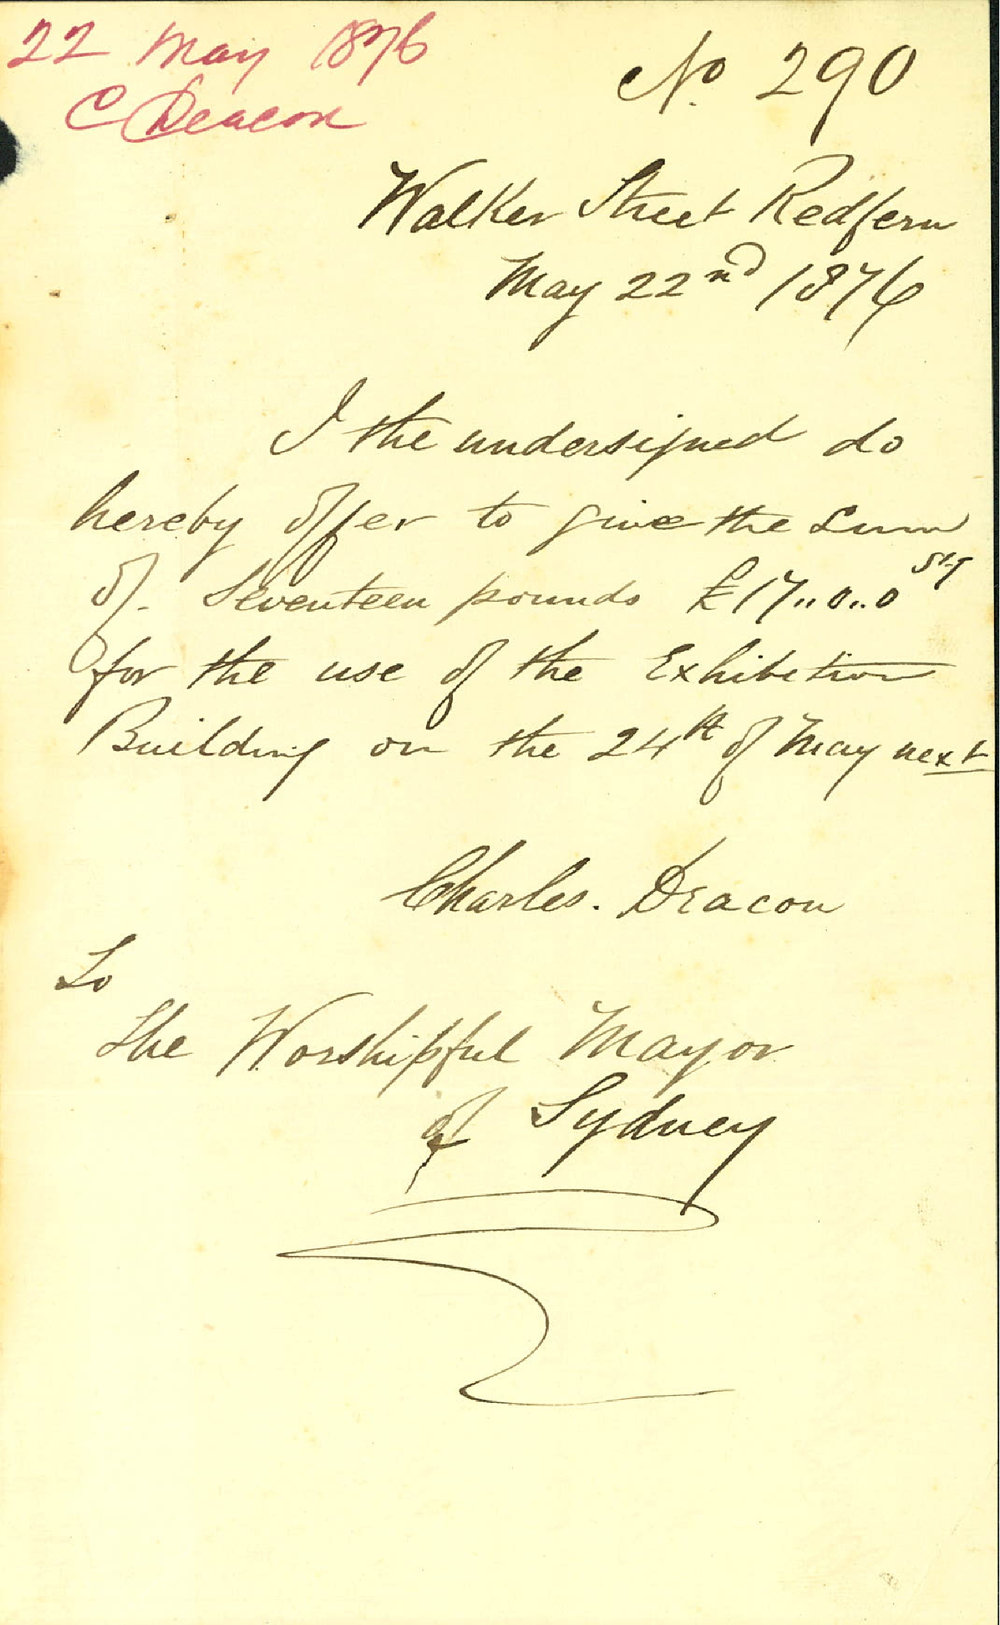 22 May 1876
C Deacon
No. 290
Walker Street Redfern
May 22nd 1876
I the undersigned do
hereby offer to give the Sum
of. Seventeen pounds £17..0..0 Stg
for the use of the Exhibition
Building on the 24th of May next
Charles. Deacon
To
The Worshipful Mayor
of Sydney